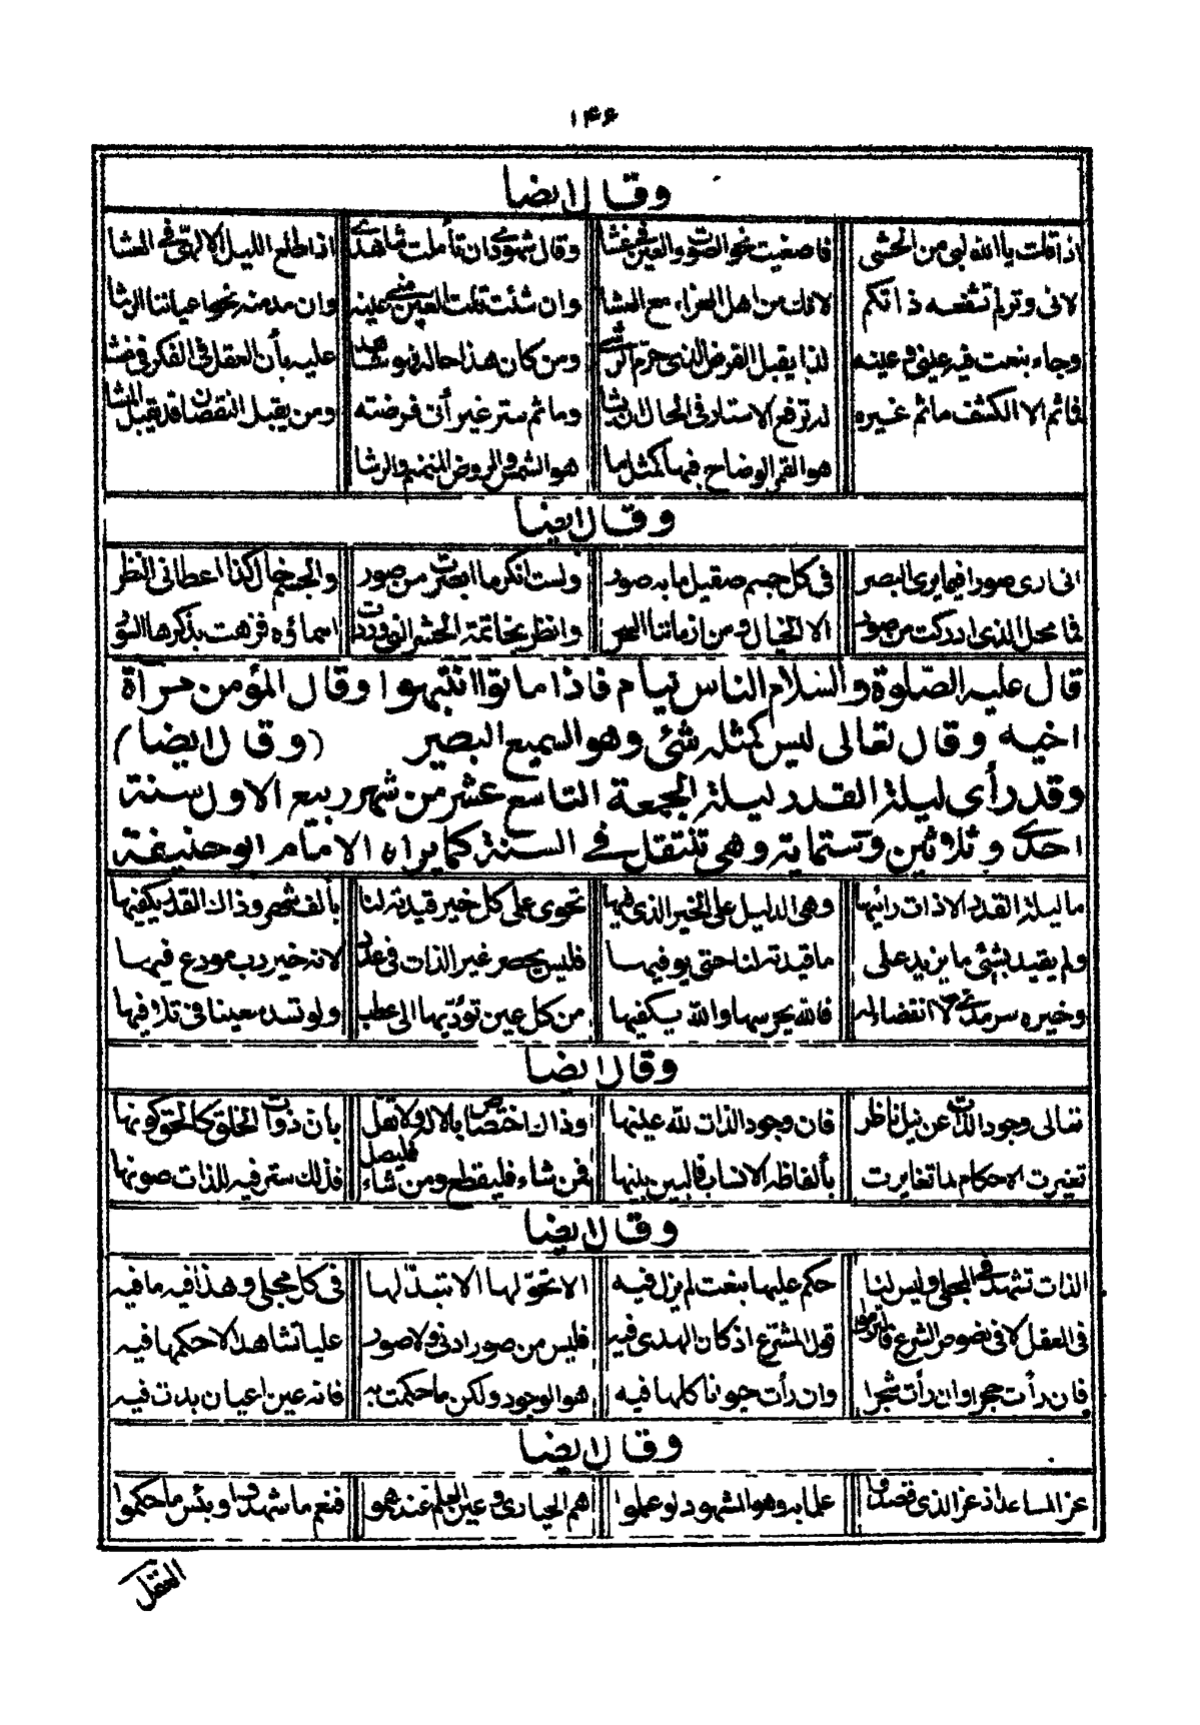 ١٤٦
وقال ايضا
اذا قلت يا الله لبى من الحشى فاصغيت نحو الصوت والعين في غشا وقال شهودى ان تأملت شاهدى اذا طلع الليل الالهى في العشا
لانى وتر لم تشفعه ذاتكم لانك من اهل العزاء مع العشا وان شئت قلت العين منى عينه وان مد منه نحوها عياننا الرشا
وجاء بنعت فيه عينى وعينه لذا يقبل القرض الذى حرم الرشى ومن كان هذا حاله فهو شاهد عليه بأن العقل في الفكر قد فشا
فما ثم الا الكشف ما ثم غيره لم ترفع الاستار في الحال ان يشا وما ثم ستر غير أنى فرضته ومن يقبل النقصان قد يقبل المشا
هو القمر الوضاح فيها كمثل ما هو الشمس والروض المنمنم والرشا
وقال ايضا
انى ارى صورا فيما يرى البصر فى كل جسم صقيل ما به صور ولست انكر ما ابصرت من صور والجسم خال كذا اعطانى النظر
فما محل الذى ادركت من صور الا الخيال ومن ازماننا السحر وانظر بخاتمة الحشر التى وردت اسماؤه فزهت بذكرها السور
قال عليه الصلوة والسلام الناس نيام فاذا ماتوا انتبهوا وقال المؤمن مرآة
اخيه وقال تعالى ليس كمثله شئ وهو السميع البصير (وقال ايضا)
وقد رأى ليلة القدر ليلة الجمعة التاسع عشر من شهر ربيع الاول سنة
احدى وثلاثين وستماية وهى تنتقل في السنة كما يراه الامام ابو حنيفة
ما ليلة القدر الا ذات رائيها وهى الدليل على الخير الذى فيها تحوى على كل خير قيدته لنا بألف شهر وذاك القدر يكفيها
ولم يقيد بشئ ما يزيد على ما قيدته لنا حتى يوفيها فليس يحصر غير الذات فى عدد لانه خير رب مودع فيها
وخيره سرمدى لا انقضاء له فالله يحرسها والله يكفيها من كل عين تؤديها الى عطب ولو تسد معينا فى تلافيها
وقال ايضا
تعالى وجود الذات عن نيل ناظر فان وجود الذات لله عينها وذاك اختصاص بالاله ولا تقل بأن ذوات الخلق كالحق كونها
تغيرت الاحكام لما تغايرت بألفاظه الانساب فالبين بينها فمن شاء فليقطع ومن شاء فليصل فذلك ستر فيه للذات صونها
وقال ايضا
الذات تشهد في المجلى وليس لنا حكم عليها بنعت لم يزل فيه الا تحوّلها الا تبدّلها فى كل مجلى وهذا فيه ما فيه
فى العقل لا فى نصوص الشرع فالتزموا قول المشرّع اذ كان الهدى فيه فليس من صور ادنى ولا صور عليا تشاهدها الا حكمها فيه
فان رأت حجرا وان رأت شجرا وان رأت حيوانا كلها فيه هو الوجود ولكن ما حكمت به فانه عين اعيان بدت فيه
وقال ايضا
عز المساعد اذ عز الذى قصدوا علما به وهو المشهود لو عملوا هم الحيارى وعين العلم عندهمو فنعم ما شهدوا وبئس ما حكموا
العقل